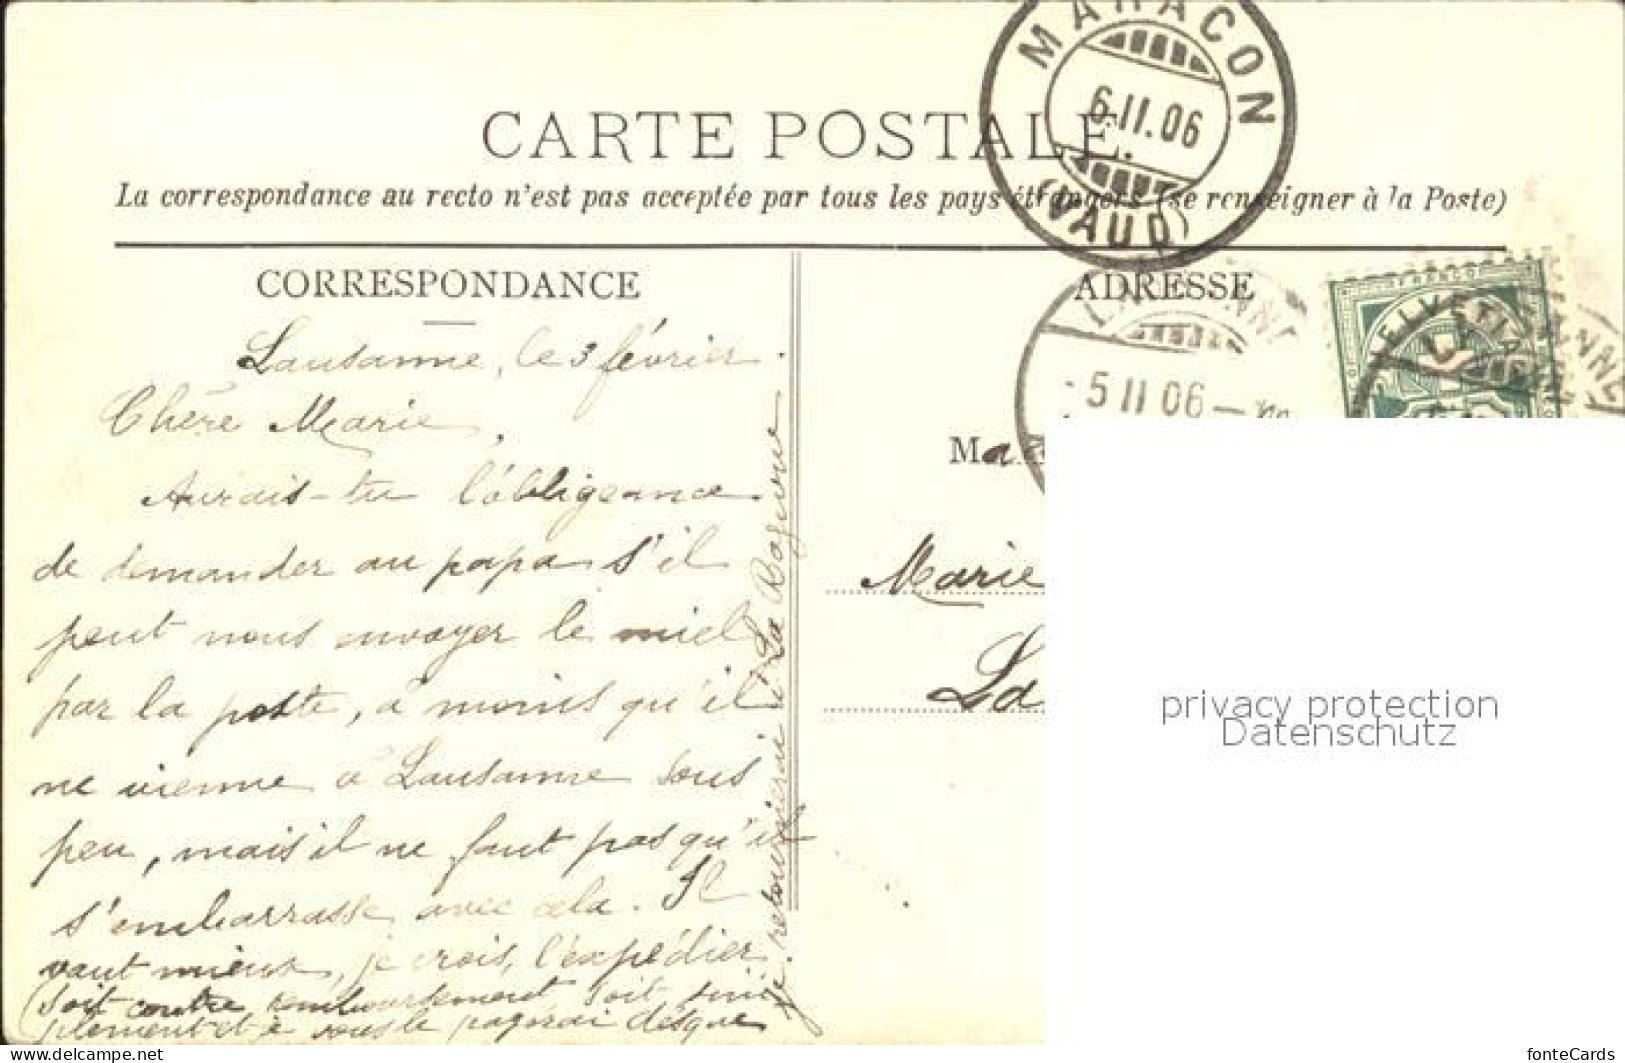 MARACON
6.II.06
(VAUD)
CARTE POSTALE.
La correspondance au recto n'est pas acceptée par tous les pays étrangers (se renseigner à la Poste)
CORRESPONDANCE
ADRESSE
HELVETIA
FRANCO
LAUSANNE
-5 II 06-
Lausanne, le 3 février.
Chère Marie,
Aurais-tu l'obligeance
de demander au papa s'il
peut nous envoyer le miel
par la poste, à moins qu'il
ne vienne à Lausanne sous
peu, mais il ne faut pas qu'il
s'embarrasse avec cela. Il
vaut mieux, je crois, l'expédier
(soit contre remboursement, soit sim
plement et je vous le payerai dès que
je retournerai à La Rogivue
M
Marie
La
privacy protection
Datenschutz
delcampe.net
fonteCards